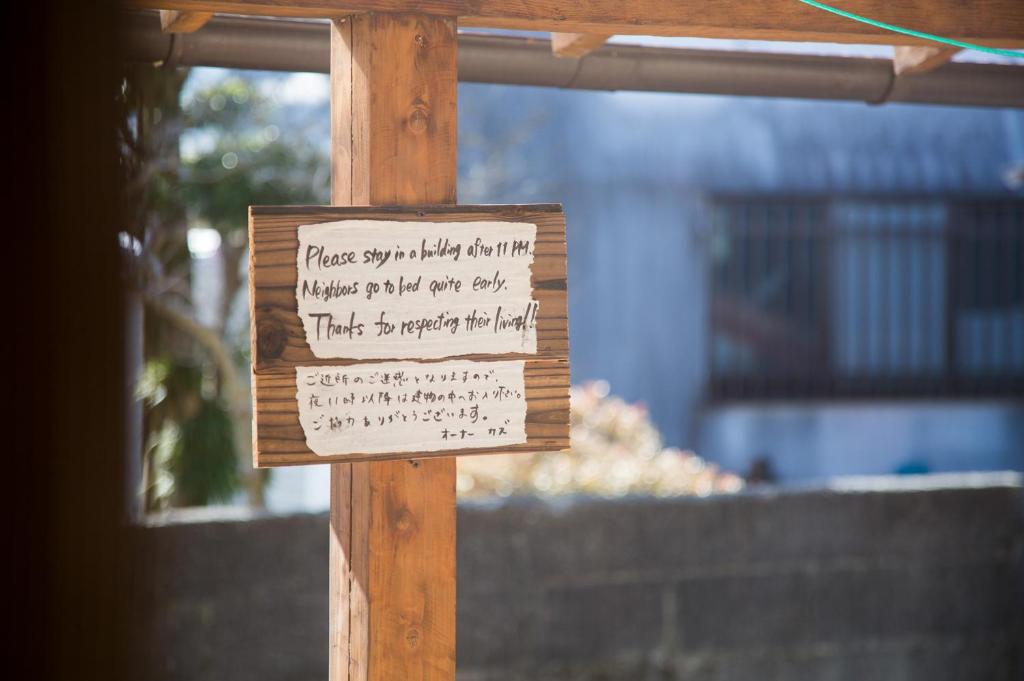 Please stay in a building after 11 PM.
Neighbors go to bed quite early.
Thanks for respecting their living!!
ご近所のご迷惑となりますので、
夜11時以降は建物の中へお入り下さい。
ご協力ありがとうございます。
オーナー カズ